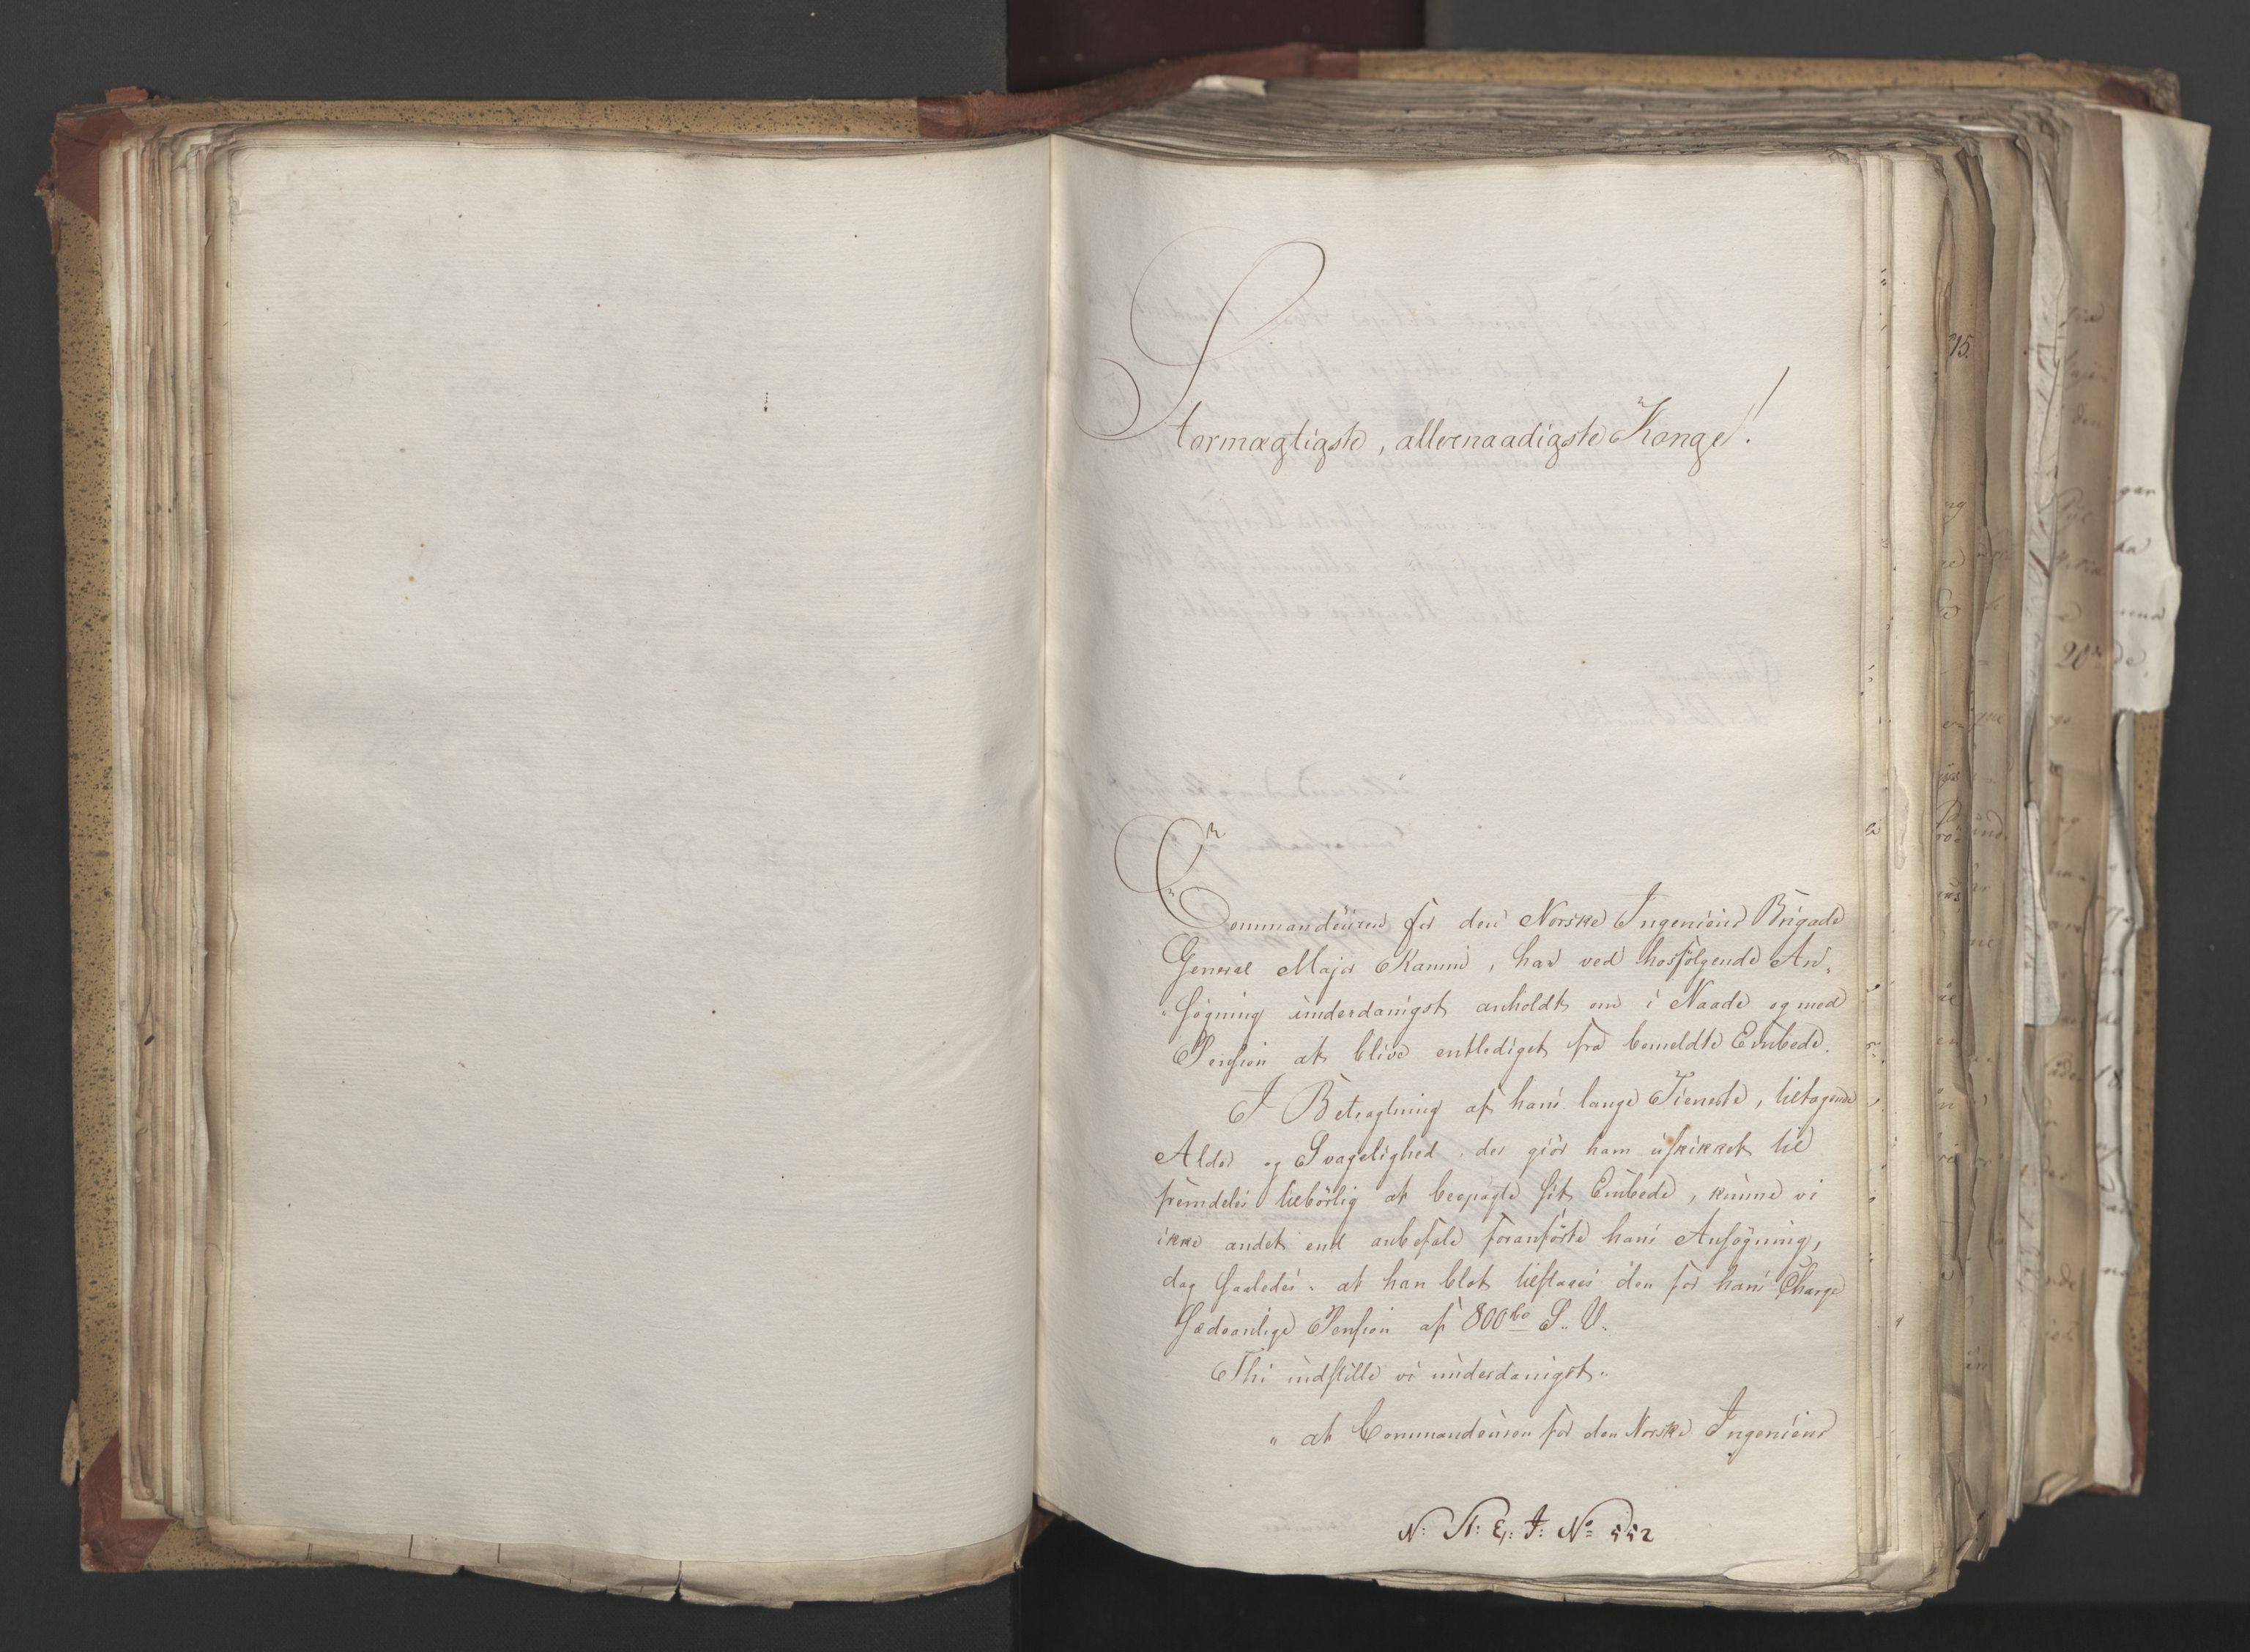 Stormægtigste, allernaadigste Konge!
Commandeuren for den Norske Ingenieur Brigade
General Major, har ved hosfölgende An-
sögning underdanigst anholdt om i Naade og med
Pension at blive entlediget fra bemeldte Embede.
I Betragtning af hans lange Tieneste, tiltagende
Alder og Svagelighed, der giör ham uskikket til
fremdeles tilbörlig at beopagte sit Embede, kunne vi
ikke andet end anbefale foranförte hans Ansögning,
dog saaledes, at han blot tilstaaes den for hans Charge
sædvanlige Pension af 800 S. V.
Thi indstille vi underdanigst:
" at Commandeuren for den Norske Ingenieur
N: St: E: J: No 552